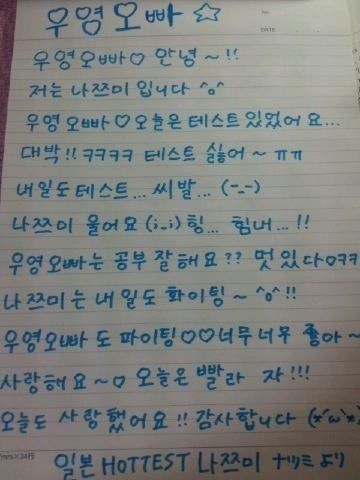 우영오빠 ☆
우영오빠♡ 안녕~!!
저는 나쯔미 입니다 ^o^
우영오빠♡오늘은 테스트 있었어요...
대박!! ㅋㅋㅋㅋ 테스트 싫어~ ㅠㅠ
내일도 테스트... 씨발... (-_-)
나쯔미 울어요 (i_i) 힝... 힘내...!!
우영오빠는 공부 잘해요?? 멋있다ㅇㅋㅋ
나쯔미는 내일도 화이팅~ ^o^!!
우영오빠도 파이팅♡♡너무너무 좋아~
사랑해요~♡ 오늘은 빨라 자!!!
오늘도 사랑했어요!! 감사합니다 (x´ω`x)
일본 HOTTEST 나쯔미 ナツミより